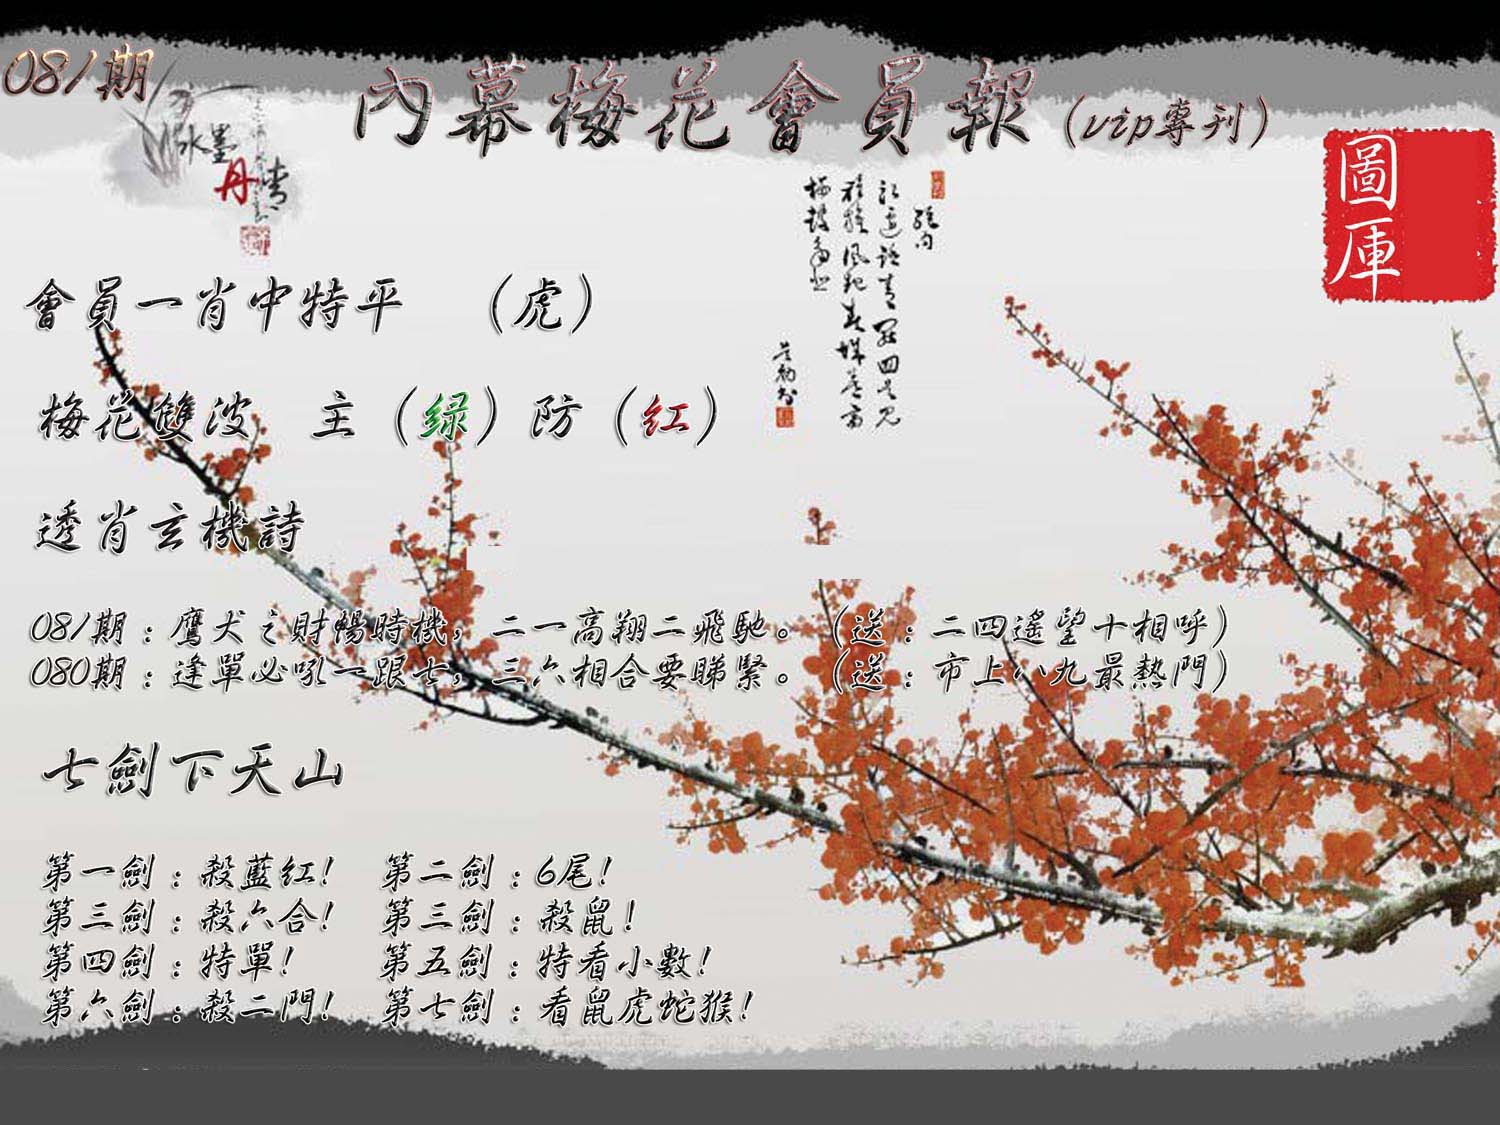 081期
內幕梅花會員報(vip專刊)
水墨
丹青
圖
庫
會員一肖中特平 (虎)
梅花雙波 主(绿)防(红)
透肖玄機詩
081期:鷹犬之財暢時機,二一高翔二飛馳。(送:二四遙望十相呼)
080期:逢單必吼一跟七,三六相合要睇緊。(送:市上八九最熱門)
七劍下天山
第一劍:殺藍红! 第二劍:6尾!
第三劍:殺六合! 第三劍:殺鼠!
第四劍:特單! 第五劍:特看小數!
第六劍:殺二門! 第七劍:看鼠虎蛇猴!